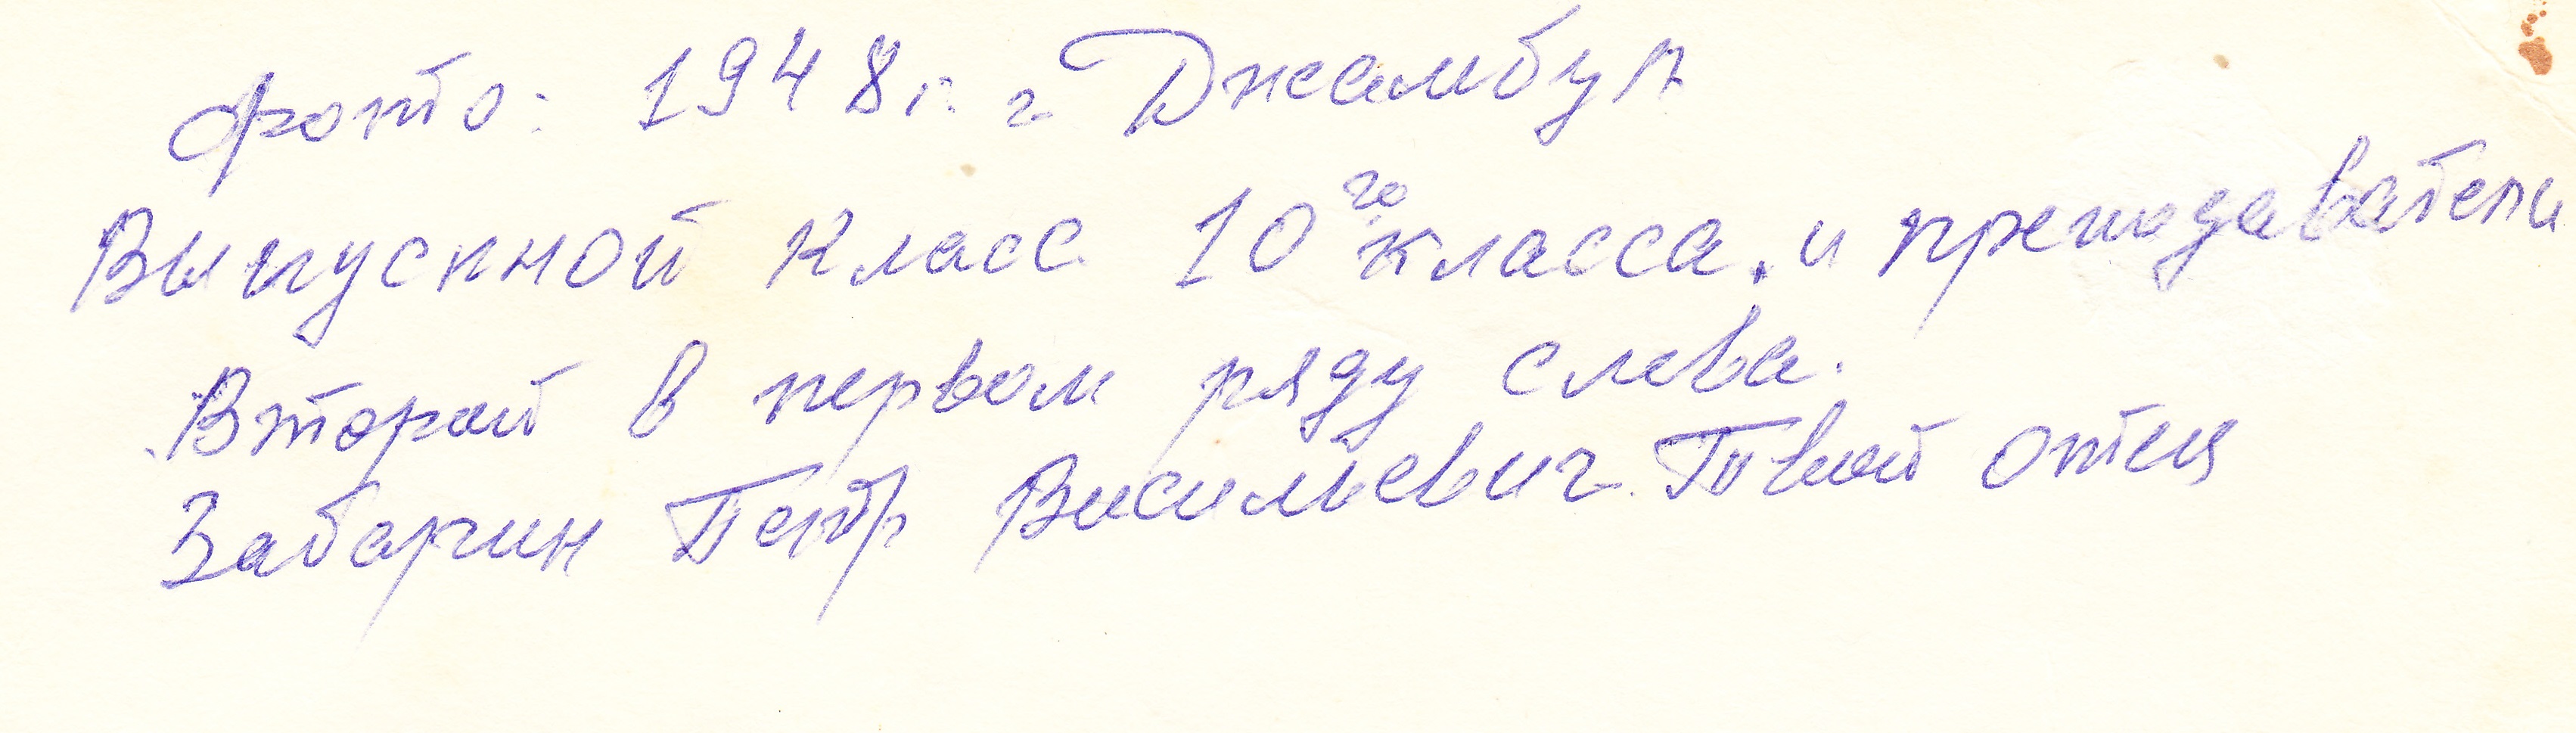 Фото: 1948 г. г Джамбул
Выпускной класс 10го класса. и преподаватели
Второй в первом ряду слева.
Забарин Петр Васильевич. Твой отец